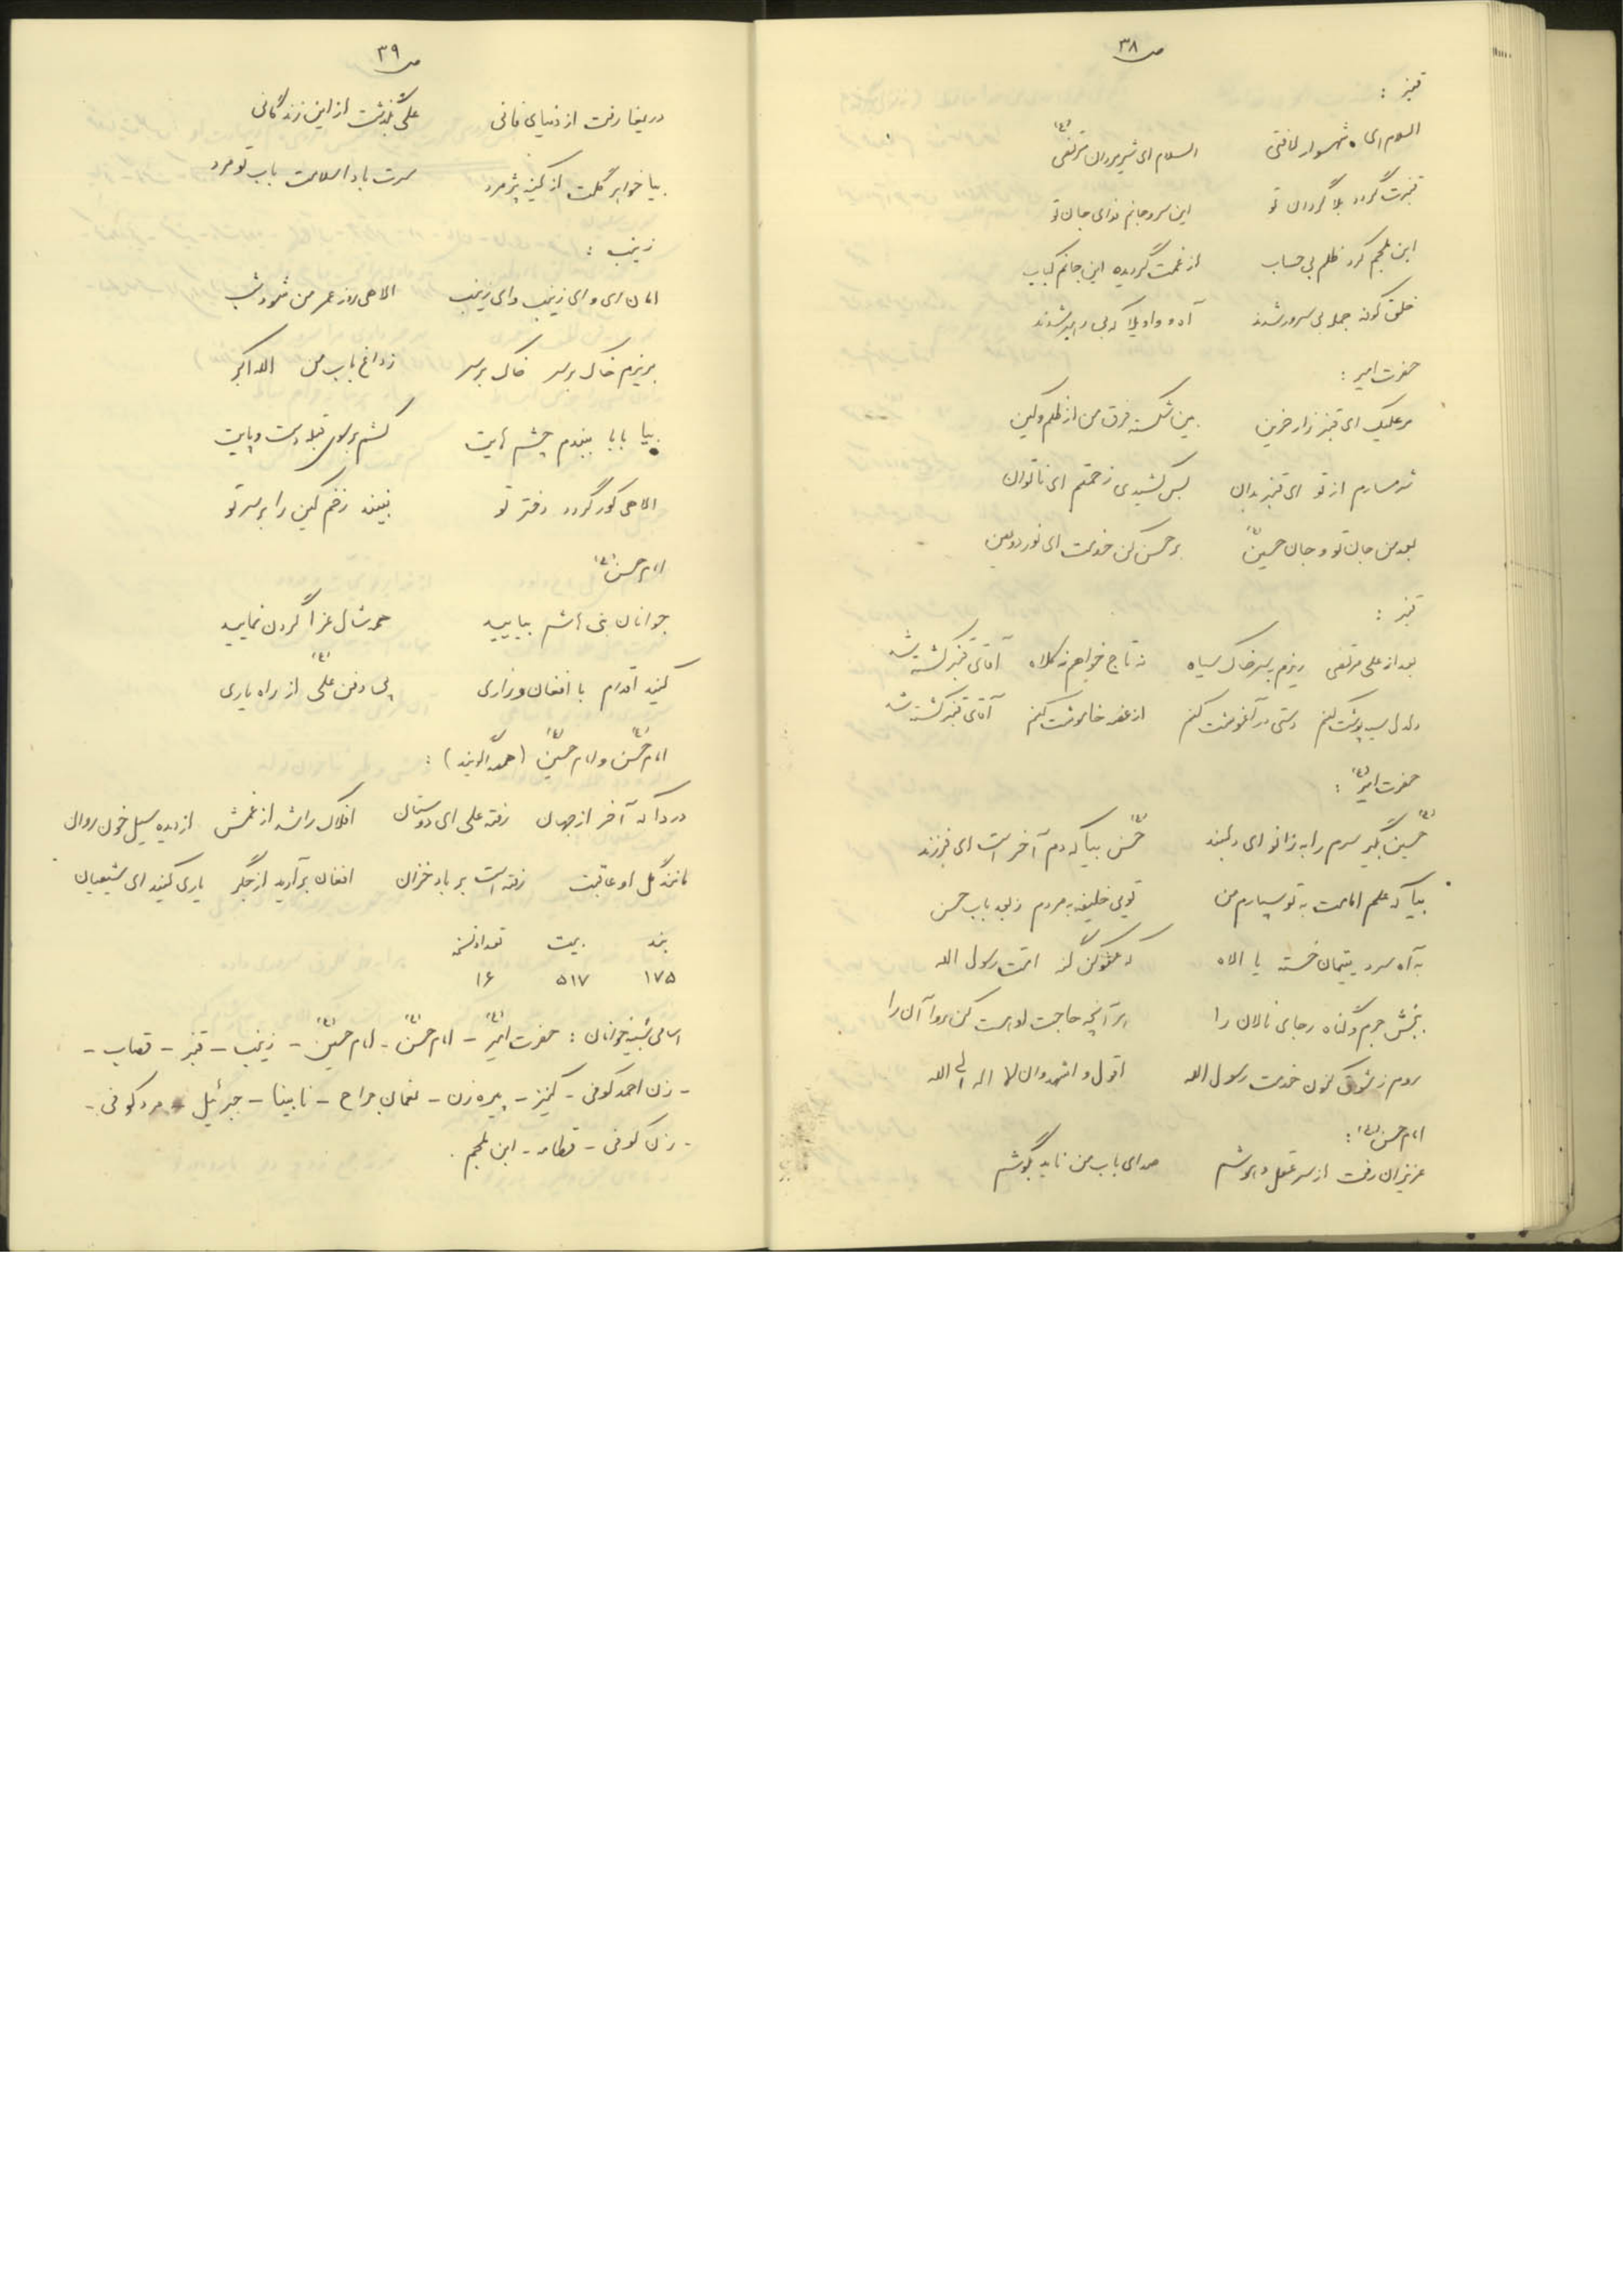 ص ۳۸
قنبر :
السلام ای شهسوار لافتی السلام ای شیر یزدان مرتضی (ع)
قنبرت گردد بلا گردان تو این سر و جانم فدای جان تو
ابن ملجم کرد ظلم بی حساب از غمت گردیده این جانم کباب
خلق کوفه جمله بی سرور شدند آه و واویلا که بی رهبر شدند
حضرت امیر :
مر علیک ای قنبر زار حزین ببین شکسته فرق من از ظلم و کین
شرمسارم از تو ای قنبر بدان بس کشیدی زحمتم ای ناتوان
بعد من جان تو و جان حسین (ع) بر حسن کن خدمت ای نور دو عین
قنبر :
بعد از علی مرتضی ریزم بسر خاک سیاه نه تاج خواهم نه کلاه آقای قنبر کشته شد
دلدل سیه پوشت کنم دستی در آغوشت کنم از غصه خاموشت کنم آقای قنبر کشته شد
حضرت امیر (ع) :
حسین (ع) بگیر سرم را به زانو ای دلبند حسن (ع) بیا که دم آخر است ای فرزند
بیا که علم امامت به تو سپارم من تویی خلیفه به مردم ز بعد باب حسن
به آه سرد یتیمان خسته یا الاه که عفو کن گنه امت رسول الله
ببخش جرم و گناه رجای نالان را هر آنچه حاجت او است کن روا آن را
روم ز شوق کنون خدمت رسول الله اقول و اشهد ان لا اله الی الله
امام حسن (ع) :
عزیزان رفت از سر عقل و هوشم صدای باب من ناید بگوشم
ص ۳۹
دریغا رفت از دنیای فانی علی بگذشت از این زندگانی
بیا خواهر گلت از کینه پژمرد سرت بادا سلامت باب تو مرد
زینب :
امان ای وای زینب وای زینب الاهی روز عمر من شود شب
بریزم خاک بر سر خاک بر سر ز داغ باب من الله اکبر
بیا بابا ببندم چشم هایت کشم بر سوی قبله دست و پایت
الاهی کور گردد دختر تو نبیند زخم کین را بر سر تو
امام حسن (ع)
جوانان بنی هاشم بیایید همه شال عزا گردن نمایید
کنید اقدام با افغان و زاری پی دفن علی (ع) از راه یاری
امام حسن (ع) و امام حسین (ع) (همه گویند) :
دردا که آخر از جهان رفته علی ای دوستان افلاک را شد از غمش از دیده سیل خون روان
مانند گل او عاقبت رفته است بر باد خزان افغان برآرید از جگر یاری کنید ای شیعیان
بند بیت تعداد نسخه
۱۷۵ ۵۱۷ ۱۶
اسامی شبیه خوانان : حضرت امیر (ع) - امام حسن (ع) - امام حسین (ع) - زینب - قنبر - قصاب -
- زن احمد کوفی - کنیز - پیره زن - نعمان جراح - نابینا - جبرئیل - مرد کوفی -
- زن کوفی - قطامه - ابن ملجم .